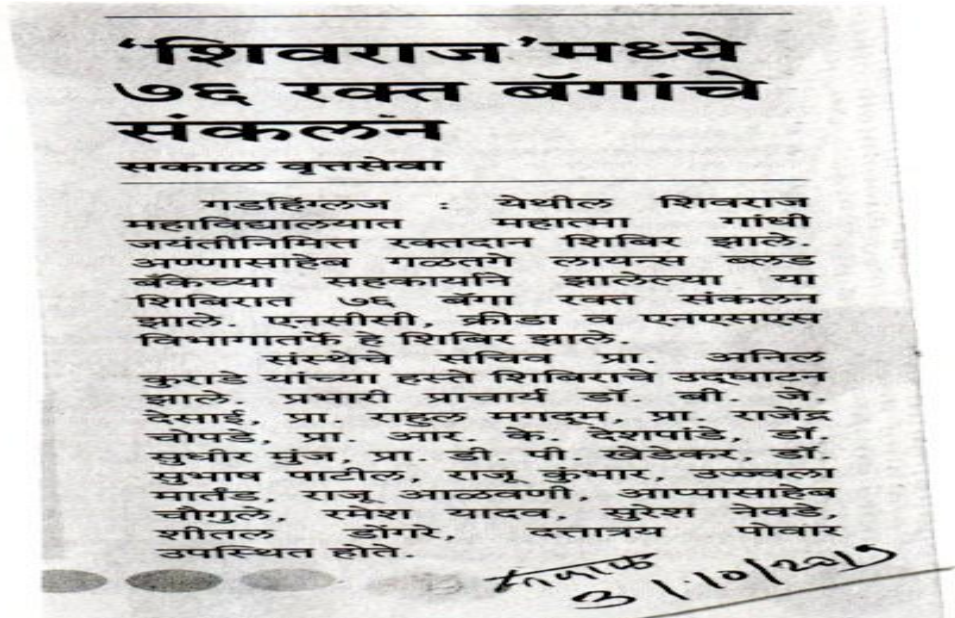 ‘शिवराज’मध्ये
७६ रक्त बॅगांचे
संकलन
सकाळ वृत्तसेवा
गडहिंग्लज : येथील शिवराज
महाविद्यालयात महात्मा गांधी
जयंतीनिमित्त रक्तदान शिबिर झाले.
अण्णासाहेब गळतगे लायन्स ब्लड
बँकेच्या सहकार्याने झालेल्या या
शिबिरात ७६ बॅगा रक्त संकलन
झाले. एनसीसी, क्रीडा व एनएसएस
विभागातर्फे हे शिबिर झाले.
संस्थेचे सचिव प्रा. अनिल
कुराडे यांच्या हस्ते शिबिराचे उद्‌घाटन
झाले. प्रभारी प्राचार्य डॉ. बी. जे.
देसाई, प्रा. राहुल मगदूम, प्रा. राजेंद्र
चोपडे, प्रा. आर. के. देशपांडे, डॉ.
सुधीर मुंज, प्रा. डी. पी. खेडेकर, डॉ.
सुभाष पाटील, राजू कुंभार, उज्ज्वला
मार्तंड, राजू आळवणी, आप्पासाहेब
चौगुले, रमेश यादव, सुरेश नेवडे,
शीतल डोंगरे, दत्तात्रय पोवार
उपस्थित होते.
सकाळ
3/10/2019